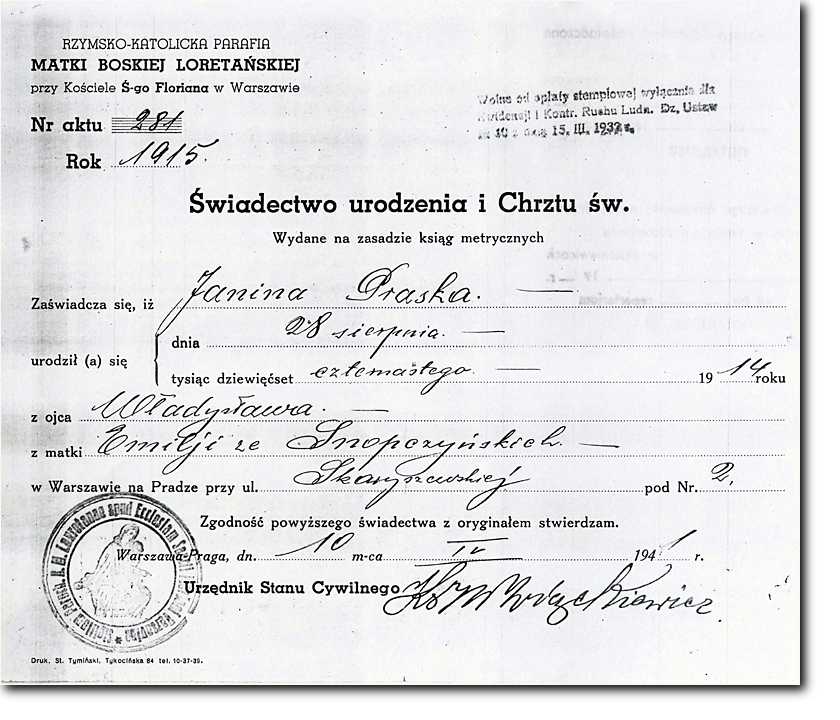 RZYMSKO-KATOLICKA PARAFIA
MATKI BOSKIEJ LORETAŃSKIEJ
przy Kościele Ś-go Floriana w Warszawie
Nr aktu 281
Rok 1915.
Wolne od opłaty stemplowej wyłącznie dla
i Kontr. Ruchu Ludn. Dz, Ustaw
15. III. 1932 r.
Świadectwo urodzenia i Chrztu św.
Wydane na zasadzie ksiąg metrycznych
Zaświadcza się, iż Janina Praska.
urodził (a) się
dnia 28 sierpnia.
tysiąc dziewięćset czternastego. 1914 roku
z ojca Władysława.
z matki Emilji ze Snopczyńskich.
w Warszawie na Pradze przy ul. Skaryszewskiej pod Nr. 2.
Zgodność powyższego świadectwa z oryginałem stwierdzam.
Warszawa-Praga, dn. 10 m-ca IV 1941 r.
Urzędnik Stanu Cywilnego
Druk. St. Tymiński, Tykocińska 84 tel. 10-37-39.